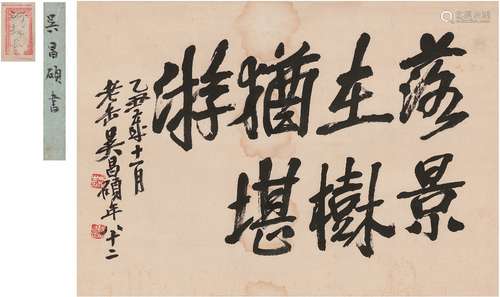 落景
在樹
猶堪
游
乙丑歲十一月
老缶吳昌碩年八十二
吳昌碩書